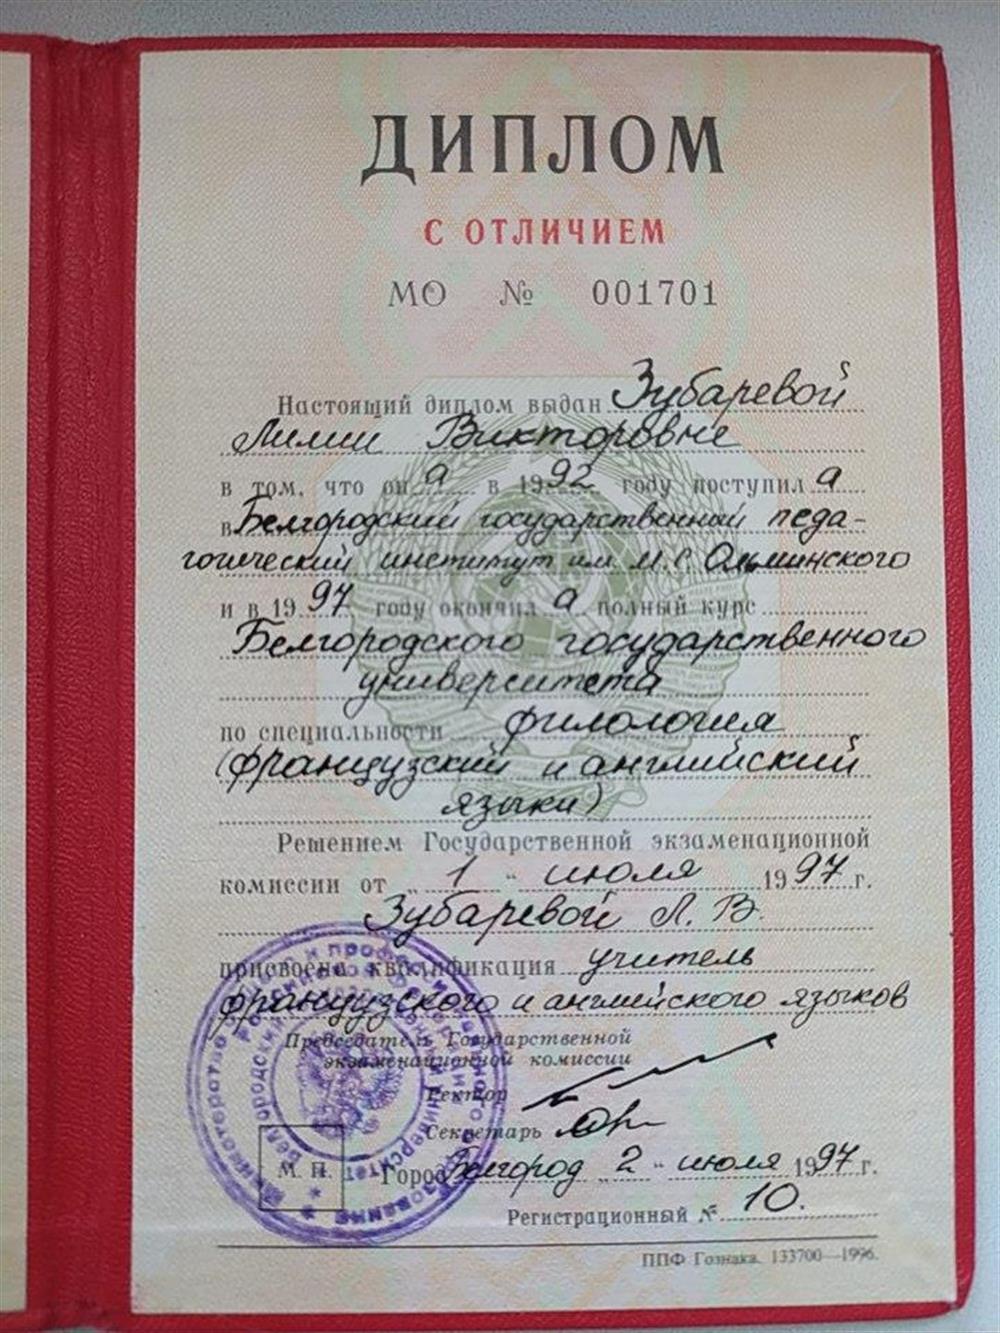 ДИПЛОМ
С ОТЛИЧИЕМ
МО № 001701
Настоящий диплом выдан Зубаревой
Лилии Викторовне
в том, что он а в 1992 году поступил а
в Белгородский государственный педа-
гогический институт им. М.С. Ольминского
и в 1997 году окончил а полный курс
Белгородского государственного
университета
по специальности филология
(французский и английский
языки)
Решением Государственной экзаменационной
комиссии от „ 1 “ июля 1997 г.
Зубаревой Л. В.
присвоена квалификация учитель
французского и английского языков
Председатель Государственной
экзаменационной комиссии
Ректор
Секретарь
М. П. Город Белгород „ 2 “ июля 1997 г.
Регистрационный № 10.
ППФ Гознака. 133700—1996.